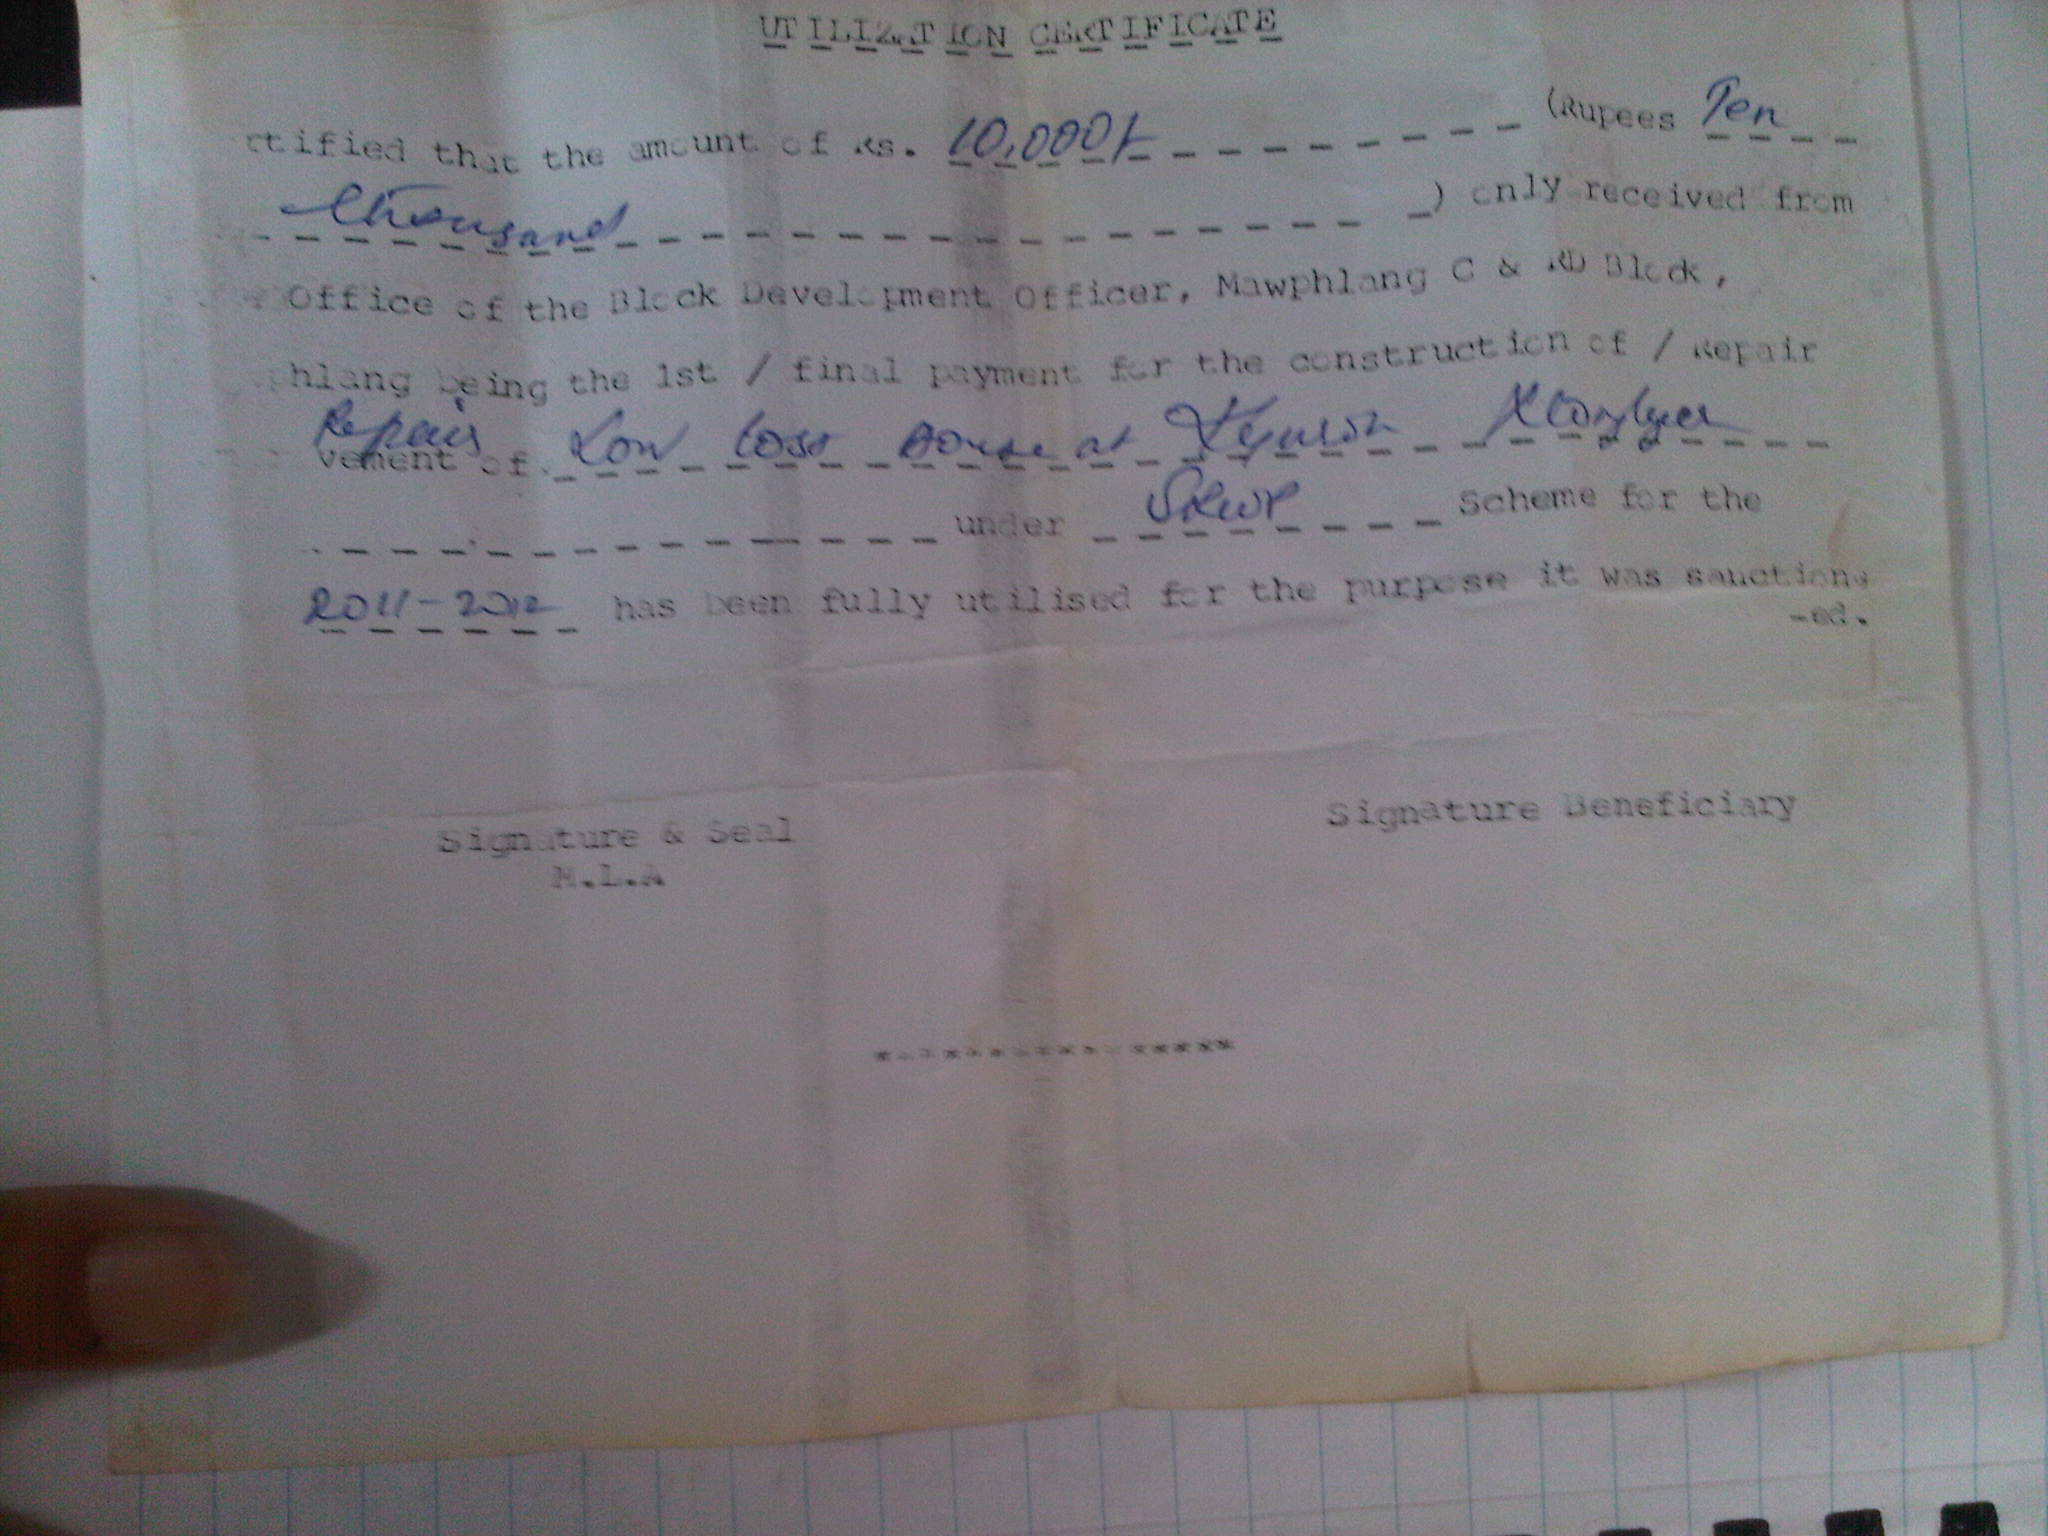 UTILIZATION CERTIFICATE
rtified that the amount of Rs. 10,000/- (Rupees Ten
thousand ) only received from
Office of the Block Development Officer, Mawphlang C & RD Block,
phlang being the 1st / final payment for the construction of / Repair
Repair
vement of Low cost house at
under SRWP Scheme for the
2011-2012 has been fully utilised for the purpose it was sanction
-ed.
Signature & Seal Signature Beneficiary
M.L.A